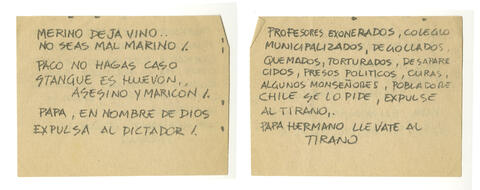 MERINO DEJA VINO..
NO SEAS MAL MARINO /.
PACO NO HAGAS CASO
STANGUE ES HUEVON..
ASESINO Y MARICON /.
PAPA, EN NOMBRE DE DIOS
EXPULSA AL DICTADOR /.
PROFESORES EXONERADOS, COLEGIO
MUNICIPALIZADOS, DEGOLLADOS,
QUEMADOS, TORTURADOS, DESAPARE
CIDOS, PRESOS POLITICOS, CURAS,
ALGUNOS MONSEÑORES, POBLADORE
CHILE SE LO PIDE, EXPULSE
AL TIRANO,.
PAPA HERMANO LLEVATE AL
TIRANO